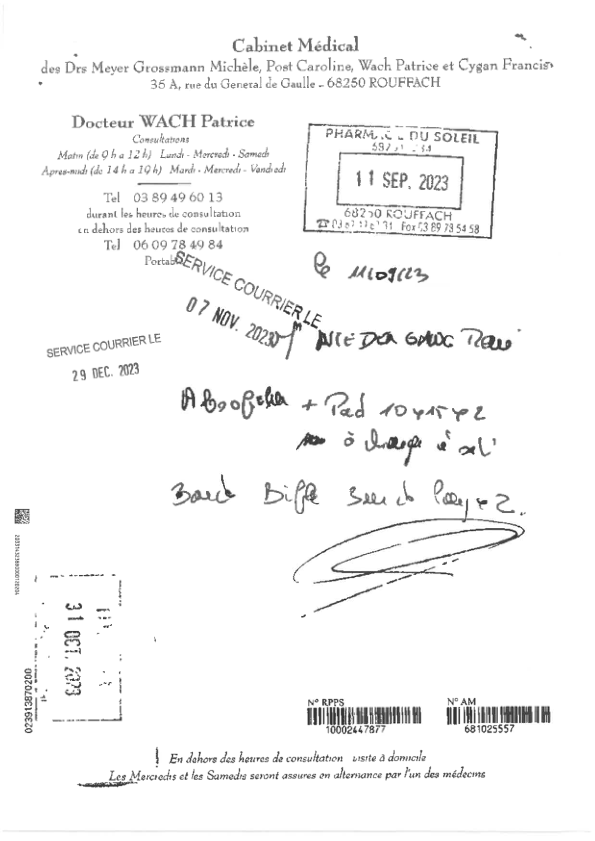 Cabinet Médical
des Drs Meyer Grossmann Michèle, Post Caroline, Wach Patrice et Cygan Francis
35 A, rue du General de Gaulle - 68250 ROUFFACH
Docteur WACH Patrice
Consultations
Matin (de 9 h a 12 h) Lundi - Mercredi - Samedi
Apres-midi (de 14 h a 19 h) Mardi - Mercredi - Vendredi
Tel 03 89 49 60 13
durant les heures de consultation
en dehors des heures de consultation
Tel 06 09 78 49 84
Portable
PHARMACIE DU SOLEIL
11 SEP. 2023
68250 ROUFFACH
Fax 03 89 78 54 58
Le 11/09/23
SERVICE COURRIER LE
07 NOV. 2023
SERVICE COURRIER LE
29 DEC. 2023
+ Pad 10 x 15 x 2
à
Bande Biflex x 2.
31 OCT. 2023
023913870200
N° RPPS
10002447877
N° AM
681025557
En dehors des heures de consultation visite à domicile
Les Mercredis et les Samedis seront assures en alternance par l'un des médecins